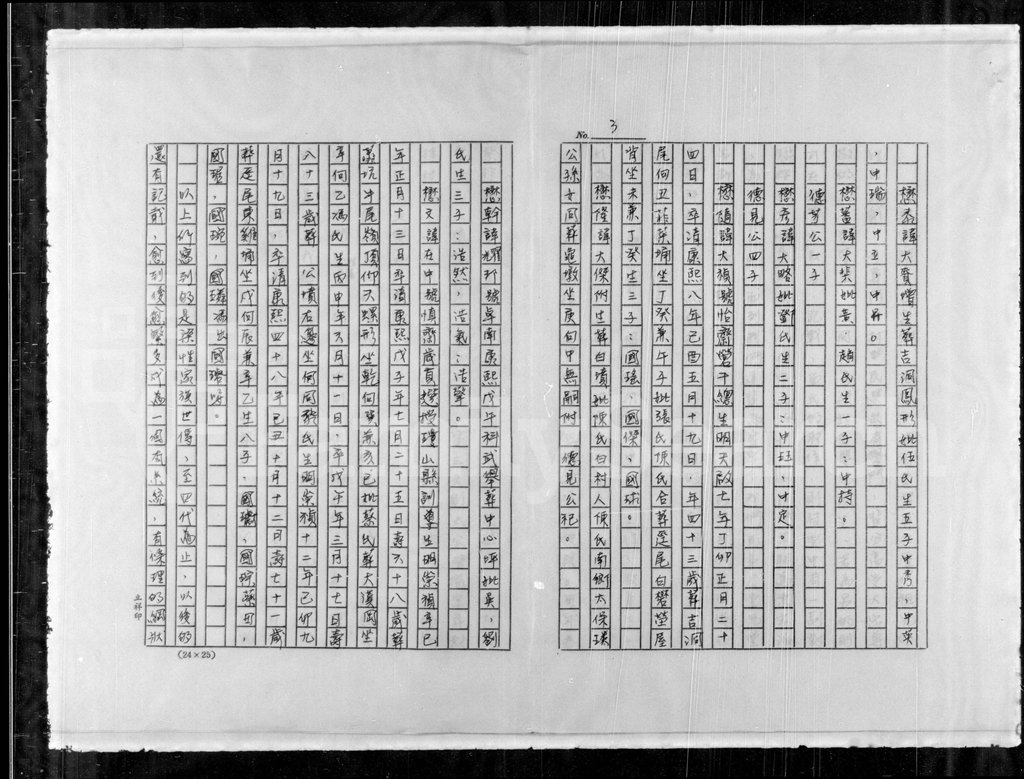 No. 3
懋香諱大賚增生葬吉洞鳳形妣伍氏生五子中秀,中英
,中瑞,中五,中昇。
懋蓋諱大 妣黃、顏氏生一子:中持。
德芳公一子
懋彥諱大略妣鄧氏生二子:中珏、中定。
德見公四子
懋隨諱大禎號怡齋營千總生明天啟七年丁卯正月二十
四日,卒清康熙八年己酉五月十九日,年四十三歲葬吉洞
尾向丑 葉埔坐丁癸兼午子妣張氏陳氏合葬 尾白 瑩屋
背坐未兼丁癸生三子:國瑤、國傑、國球。
懋隆諱大傑附生葬白墳妣陳氏白村人陳氏南鄉太保璞
公孫女同葬 墩坐庚向甲無嗣附 德見公祀。
懋幹諱耀 號卓南康熙戊午科武舉葬中心坪妣吳,劉
氏生三子:浩然,浩氣:浩 。
懋文諱在中號慎齋歲貢 授瓊山縣訓導生明崇禎辛巳
年正月十三日卒清康熙戊子年七月二十五日壽六十八歲葬
坑牛尾嶺頂仰天螺形坐乾向巽兼亥巳妣蔡氏葬大漢岡坐
辛向乙馮氏生丙申年六月十一日,卒戊午年三月十七日壽
八十三歲葬 公墳右邊坐向同 氏生明崇禎十二年己卯九
月十九日,卒清康熙四十八年己丑十月十二日壽七十一歲
葬 尾東雞埔坐戊向辰兼辛乙生八子,國 ,國 蔡出,
國 ,國琬,國璘馮出國
以上所寫到的是梁姓家族世傳,至四代為止,以後的
還有記載,愈到後愈繁多成為一個有系統,有條理的網狀
立祥印
(24×25)